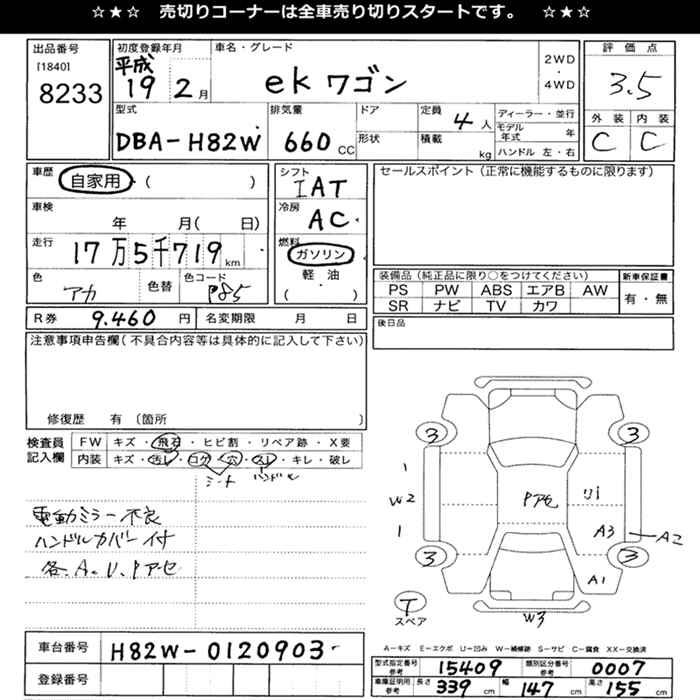 ☆★☆ 売切りコーナーは全車売り切りスタートです。 ☆★☆
出品番号
[1840]
8233
初度登録年月
平成
19 2月
車名・グレード
ek ワゴン
2WD
・
4WD
評価点
3.5
外装 内装
C C
型式
DBA-H82W
排気量
660 CC
ドア
形状
定員 4 人
積載 kg
ディーラー・並行
モデル年式 年
ハンドル 左・右
車歴 自家用・( )
車検 年 月( 日)
走行 17万5千719km
色 アカ 色替 色コード P85
シフト
IAT
冷房
AC
燃料
ガソリン
軽・油
( )
セールスポイント(正常に機能するものに限ります)
装備品(純正品に限り○をつけてください)
PS PW ABS エアB AW
SR ナビ TV カワ
新車保証書
有・無
後日品
R券 9.460 円 名変期限 月 日
注意事項申告欄(不具合内容等は具体的に記入して下さい)
修復歴 有 〔箇所 〕
検査員記入欄
FW キズ・飛石・ヒビ割・リペア跡・X要
内装 キズ・汚レ・コゲ・穴・スレ・キレ・破レ
シート ハンドル
電動ミラー不良
ハンドルカバー付
各.A.U.Pアセ
3 3
1
W2
1
Pアセ
U1
A3
A2
3 3
A1
T
スペア
W3
A-キズ E-エクボ U-凹み W-補修跡 S-サビ C-腐食 XX-交換済
車台番号 H82W-0120903
登録番号
型式指定番号 参考 15409 類別区分番号 参考 0007
車庫証明用 参考 長さ 339 cm 幅 147 cm 高さ 155 cm